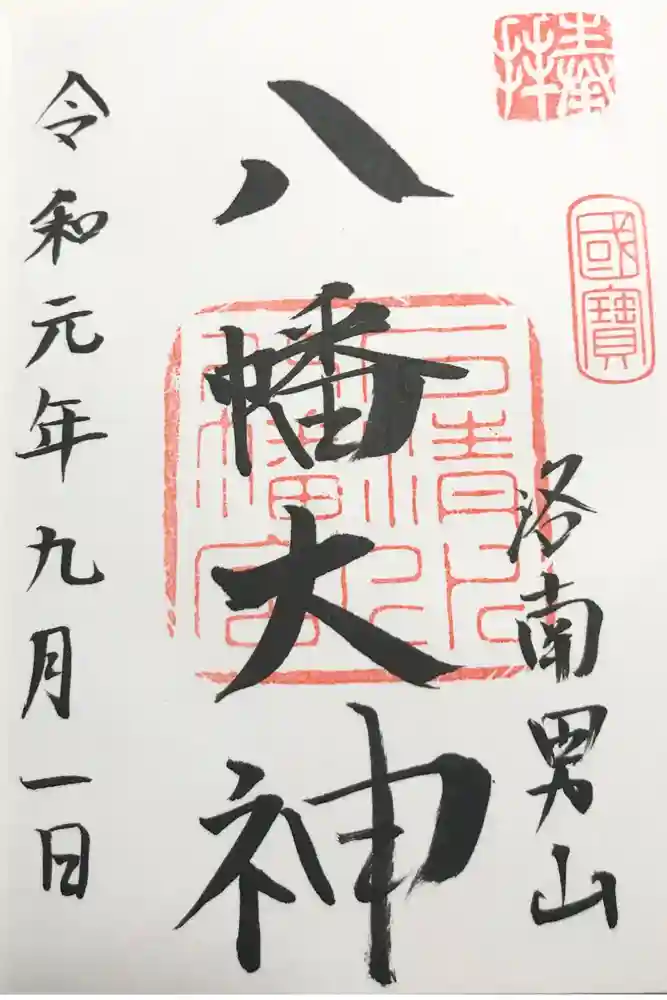 奉拝
國寶
洛南男山
八幡大神
石清水八幡宮
令和元年九月一日